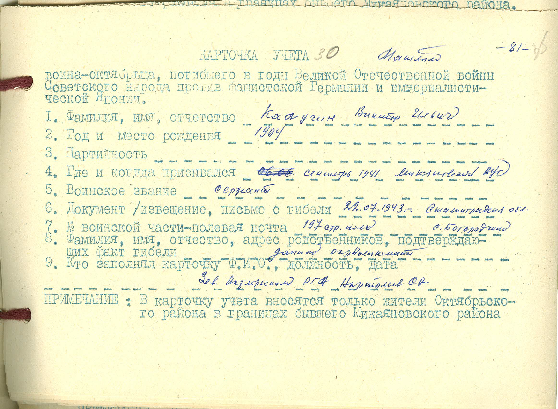 границах бывшего Микояновского района.
КАРТОЧКА УЧЕТА 30
- 81 -
воина-октябрьца, погибшего в годы Великой Отечественной войны
Советского народа против фашистской Германии и империалисти-
ческой Японии.
1. Фамилия, имя, отчетство Калугин Виктор Ильич
2. Год и место рождения 1904
3. Партийность
4. Где и когда призывался сентябрь 1941 Микояновский РВК
5. Воинское звание сержант
6. Документ /извещение, письмо с гибели 22.07.1943 г. Сталинградская обл.
7. № воинской части-полевая почта 197 с. Богородично
8. Фамилия, имя, отчество, адрес родственников, подтверждаю-
щих факт гибели данные
9. Кто заполнял карточку Ф.И.О., должность, дата
Зав.
ПРИМЕЧАНИЕ : В карточку учета вносятся только жители Октябрьско-
го района в границах бывшего Микояновского района